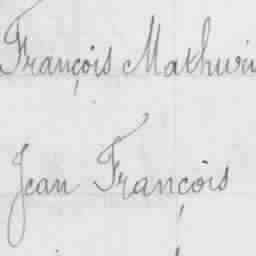 François Mathurin
Jean François